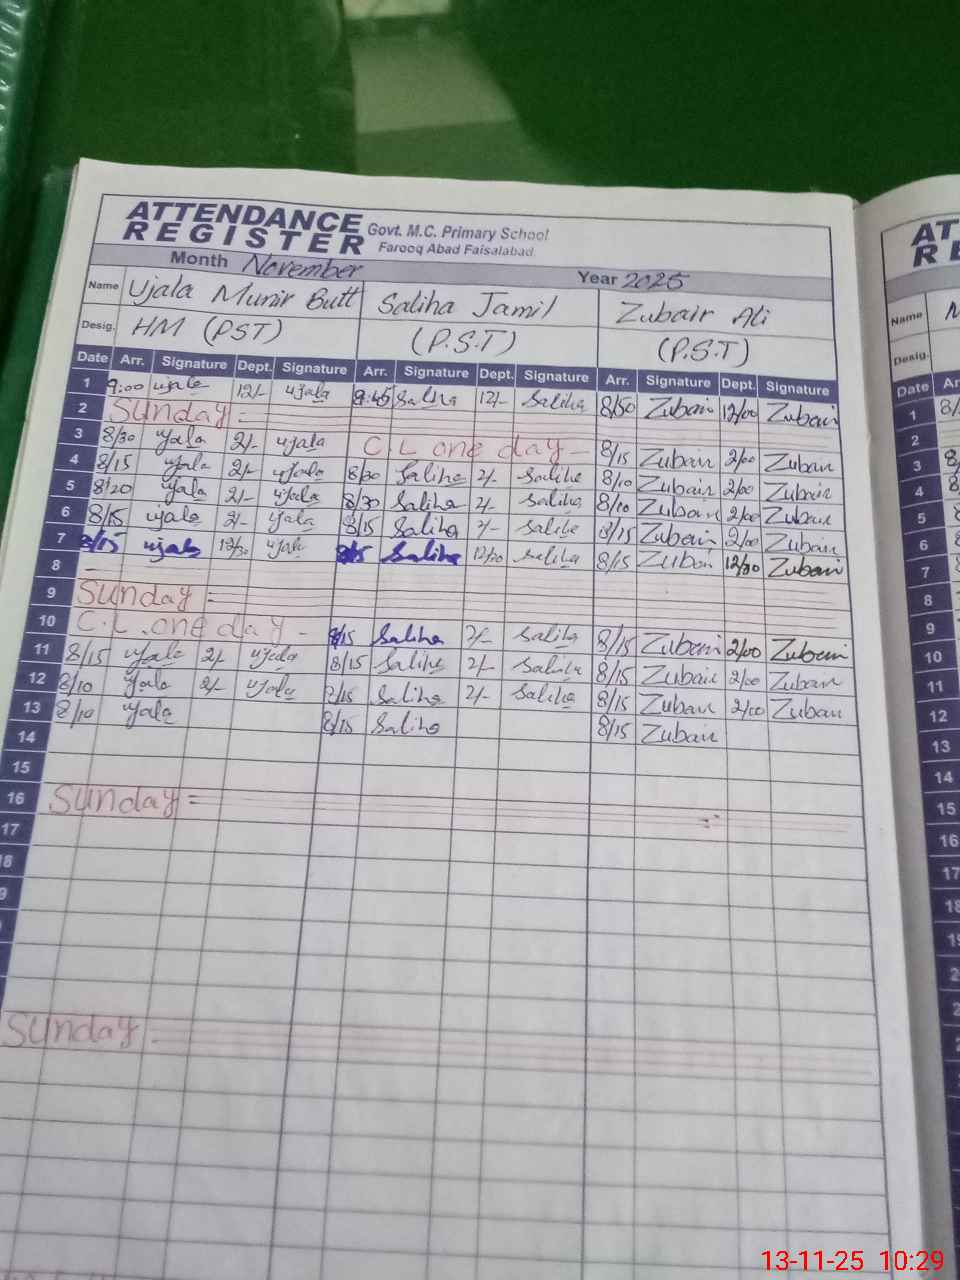 ATTENDANCE REGISTER Govt. M.C. Primary School Farooq Abad Faisalabad
Month November Year 2025
Name Ujala Munir Butt Saliha Jamil Zubair Ali
Desig. HM (PST) (P.S.T) (P.S.T)
Date Arr. Signature Dept. Signature Arr. Signature Dept. Signature Arr. Signature Dept. Signature
1 9:00 ujala 12/- ujala 9:45 Saliha 12/- Saliha 8/50 Zubair 12/00 Zubair
2 Sunday =
3 8/30 ujala 2/- ujala C.L one day - 8/15 Zubair 2/00 Zubair
4 8/15 ujala 2/- ujala 8/30 Saliha 2/- Saliha 8/10 Zubair 2/00 Zubair
5 8/20 ujala 2/- ujala 8/30 Saliha 2/- Saliha 8/10 Zubair 2/00 Zubair
6 8/15 ujala 2/- ujala 8/15 Saliha 2/- Saliha 8/15 Zubair 2/00 Zubair
7 8/15 ujala 12/30 ujala 8/15 Saliha 12/30 Saliha 8/15 Zubair 12/30 Zubair
8
9 Sunday =
10 C.L. one day - 8/15 Saliha 2/- Saliha 8/15 Zubair 2/00 Zubair
11 8/15 ujala 2/- ujala 8/15 Saliha 2/- Saliha 8/15 Zubair 2/00 Zubair
12 8/10 ujala 2/- ujala 8/15 Saliha 2/- Saliha 8/15 Zubair 2/00 Zubair
13 8/10 ujala 8/15 Saliha 8/15 Zubair
14
15
16 Sunday =
17
18
Sunday =
Name
Desig.
Date
1
2
3
4
5
6
7
8
9
10
11
12
13
14
15
16
17
18
13-11-25 10:29